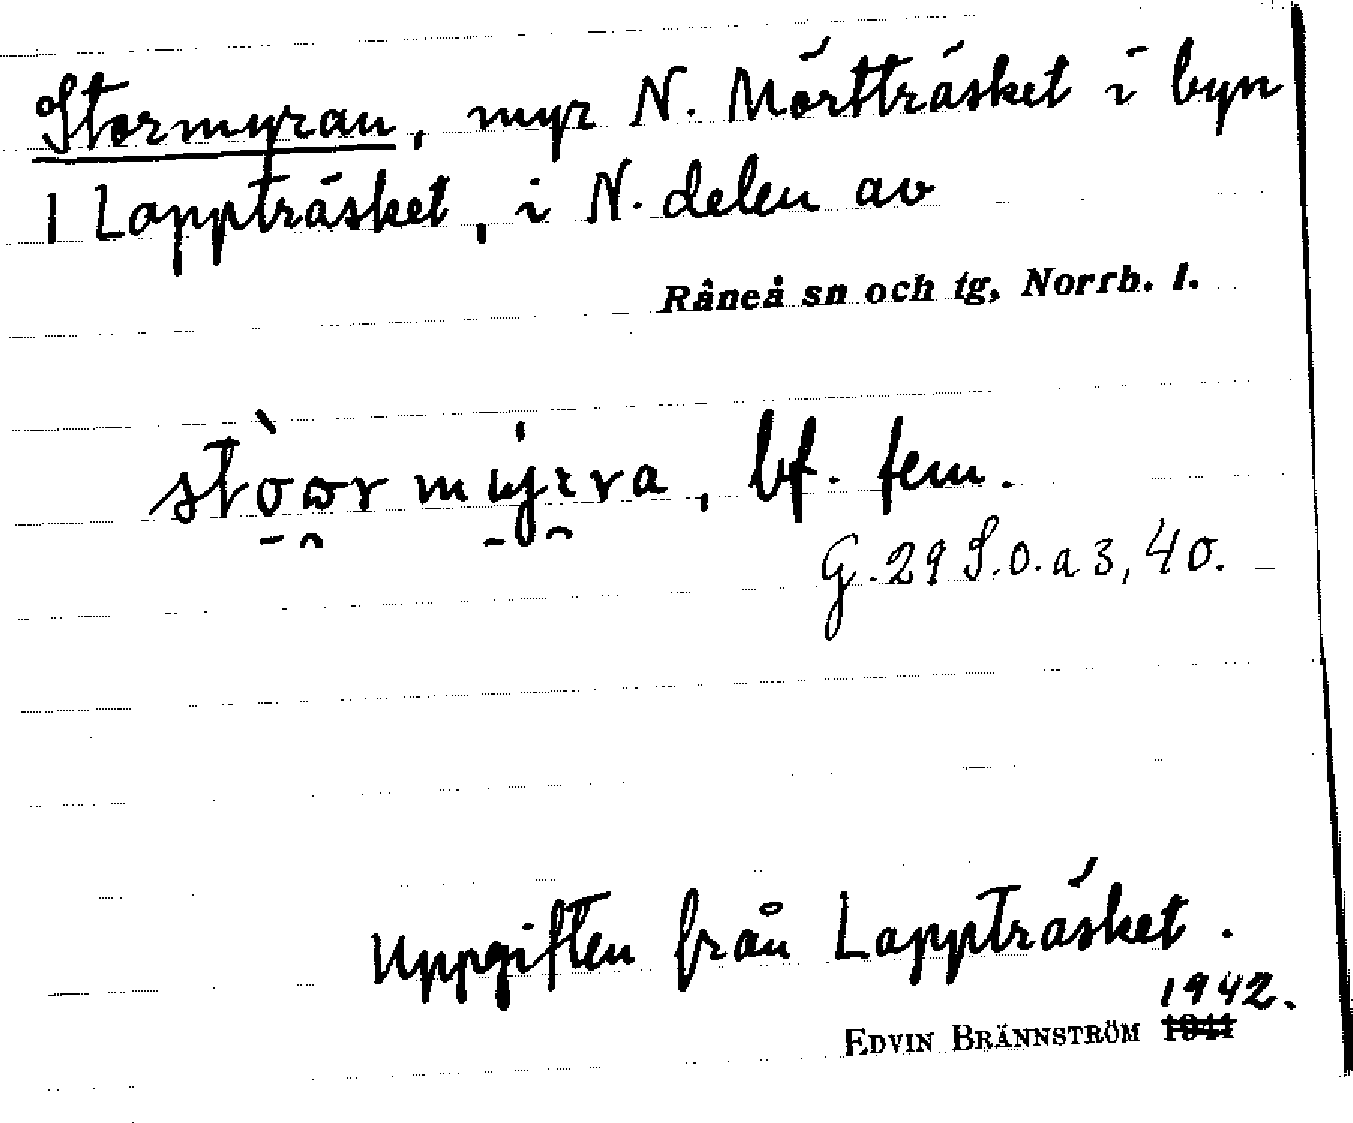 Stormyran, myr N. Mörtträsket i byn
1 Lappträsket, i N. delen av
Råneå sn och tg, Norrb. l.
bf. fem.
G. 29 S.o.a 3, 40.
Uppgiften från Lappträsket.
1942.
EDVIN BRÄNNSTRÖM 1941